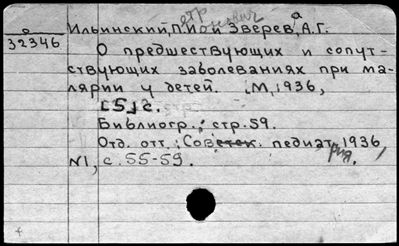 Ильинский, П.И. и Зверев, А.Г.
32346
О предшествующих и сопут-
ствующих заболеваниях при ма-
лярии у детей. М, 1936,
[5] с.
Библиогр.: стр. 59.
Отд. отт.: Совет. педиатрия, 1936,
N1, с. 55-59.